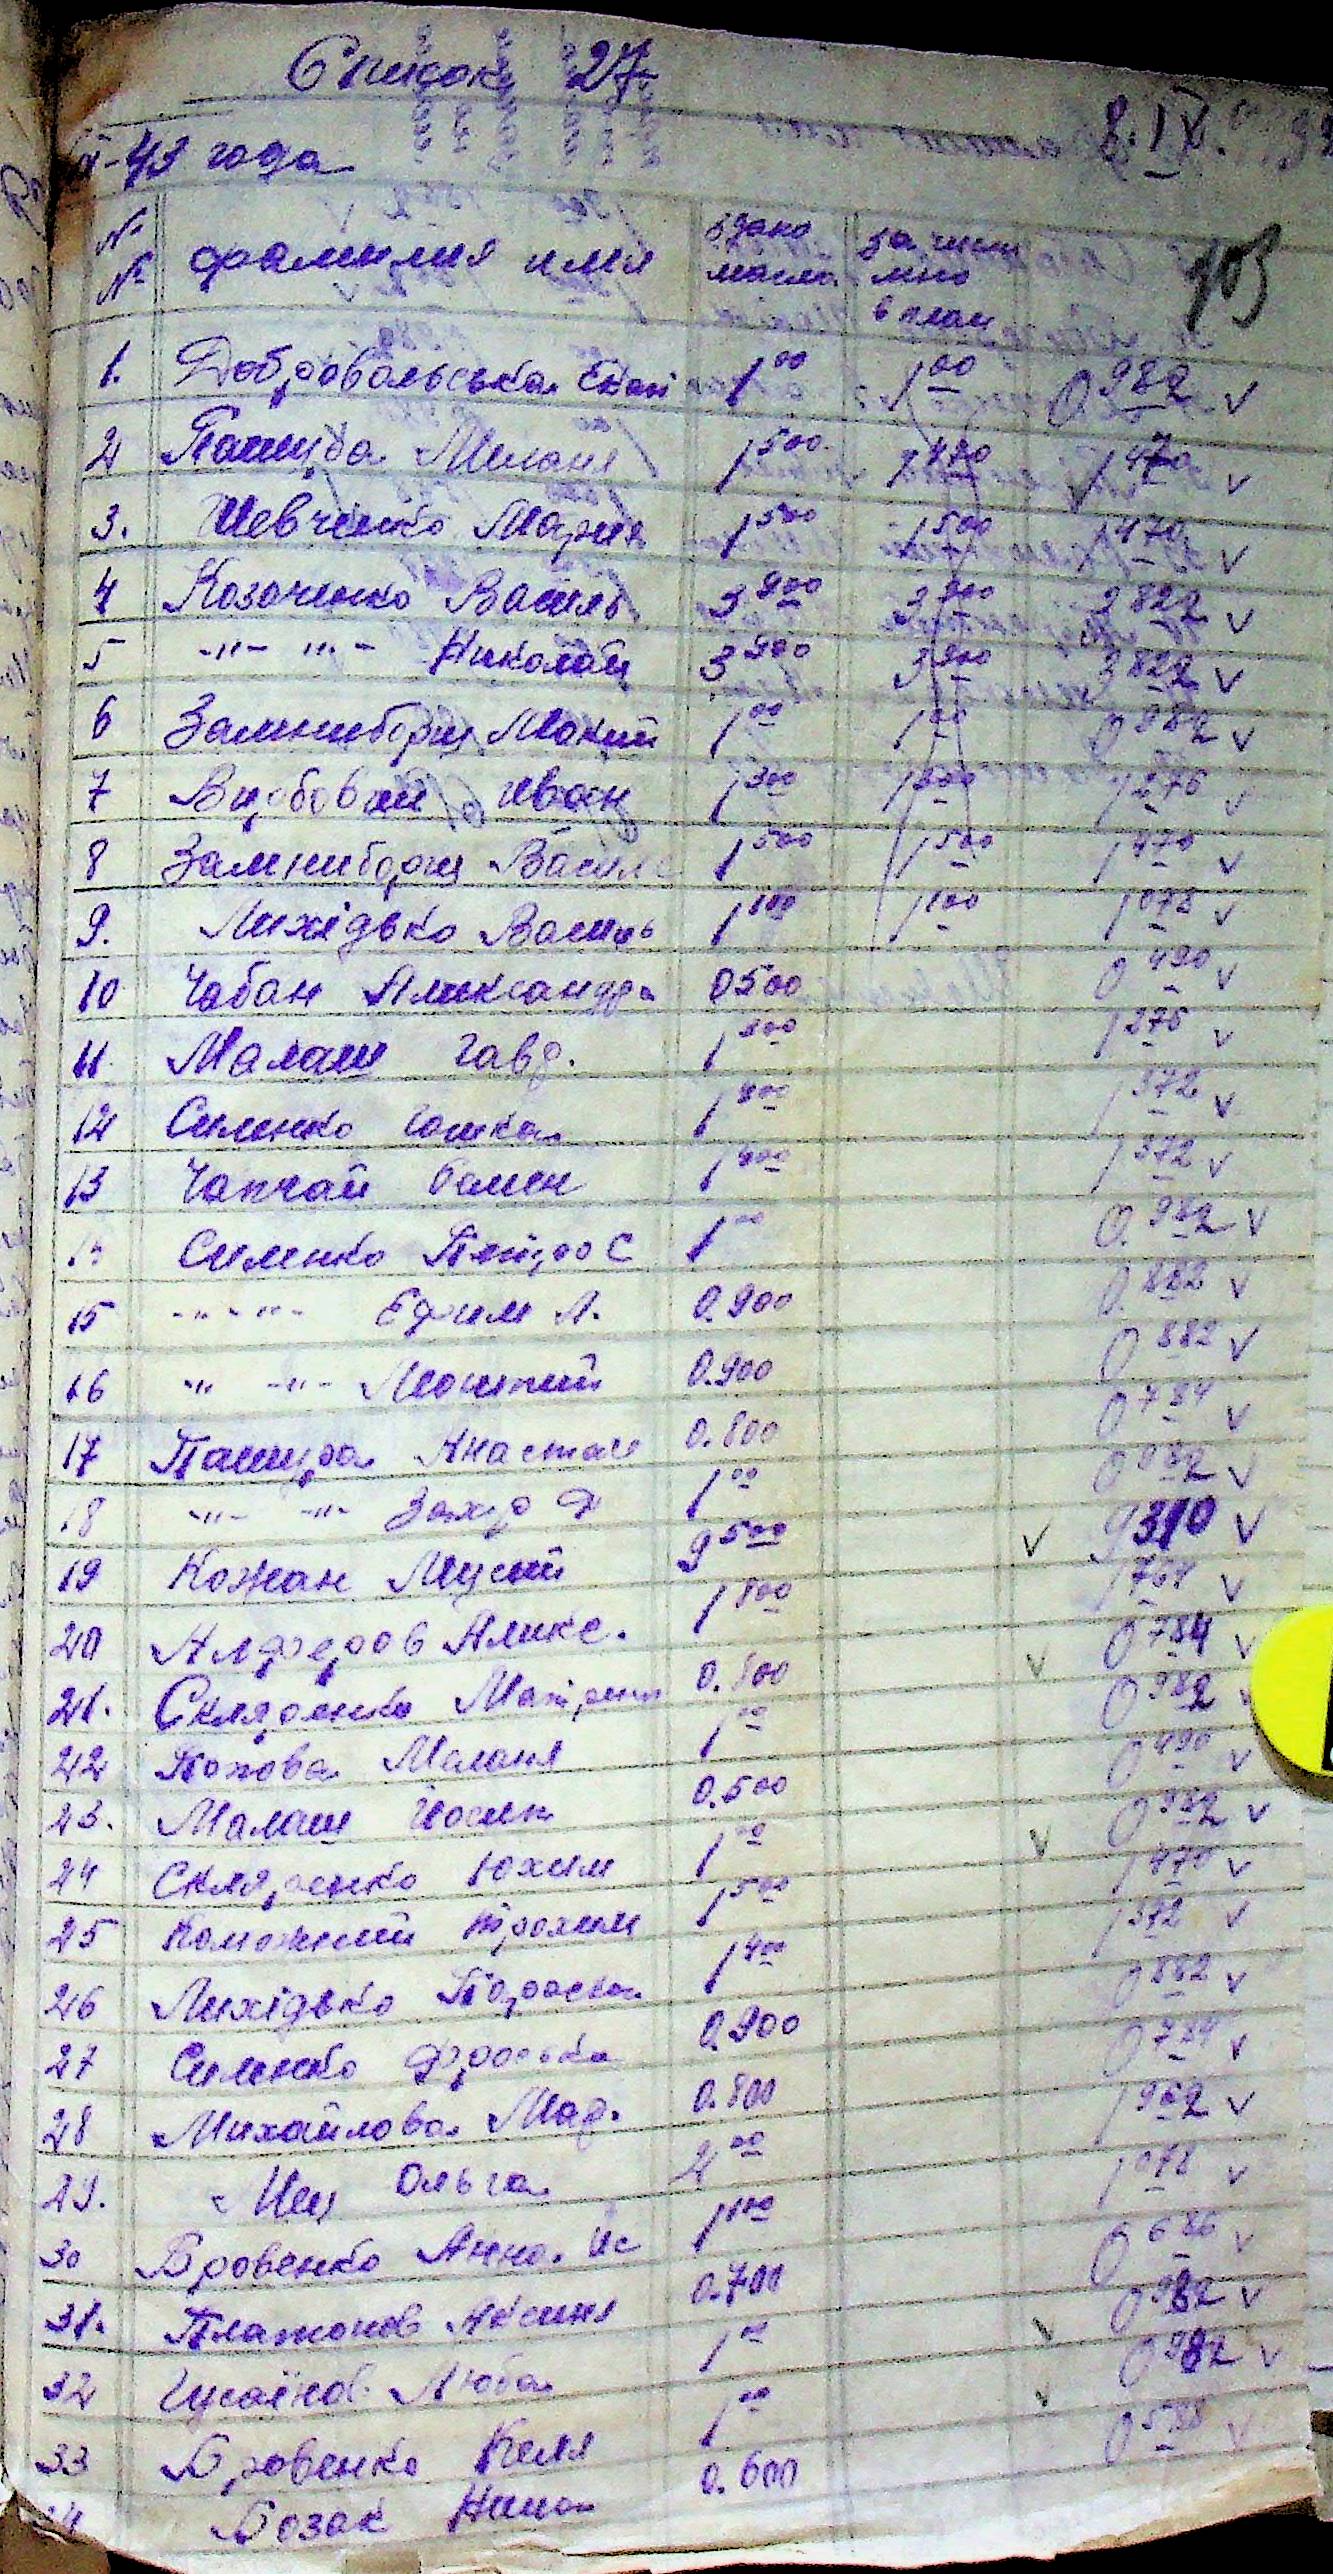 Список 27
43 года
8. IV.
№ № фамилия имя здано масла зачисл мно в план
103
1. Добровольська Екат 1 00 1 00 0 982 v
2 Пашура Мелания 1 500. 1 470 1 470 v
3. Шевченко Мария 1 500 1 500 1 470 v
4 Козаченко Василь 3 900 3 900 3 822 v
5 -"- "- Николай 3 900 3 900 3 822 v
6 Замниборщ Мокий 1 00 1 00 0 982 v
7 Вербовий Иван 1 300 1 300 1 276 v
8 Замниборщ Василь 1 500 1 500 1 470 v
9. Лихідько Василь 1 100 1 100 1 078 v
10 Чабан Александра 0500 0 490 v
11. Малаш Гавр. 1 300 1 276 v
12 Силенко 1 400 1 372 v
13 Чапчай 1 400 1 372 v
Силенко Петро С 1 00 0. 982 v
15 -"- -"- Ефим Л. 0.900 0. 882 v
16 -"- -"- 0.900 0 882 v
17 Пашура Анастас 0.800 0 784 v
18 -"- -"- Захар Ф 1 00 0 982 v
19 Кожан Мусий 9 500 v 9310 v
20 Алферов Аликс. 1 800 1 764 v
21. Скляренко Матрена 0.800 v 0 784 v
22 Попова Малания 1 00 0 982
23. Малаш Йосип 0.500 0 490 v
24 Скляренко Юхим 1 00 v 0 982 v
25 Трохим 1 500 1 470 v
26 Лихідько Параска 1 400 1 372 v
27 Силенко Фроська 0.900 0 882 v
28 Михайлова Мар. 0.800 0 784 v
29. Ольга 2 00 1 962 v
30 Бровенко Анна 1 100 1 078 v
31. Платонов Аксиня 0.700 0 686 v
32 Люба 1 00 v 0 982 v
33 Бровенко 1 00 v 0 982 v
Бозак Нина 0.600 0 588 v